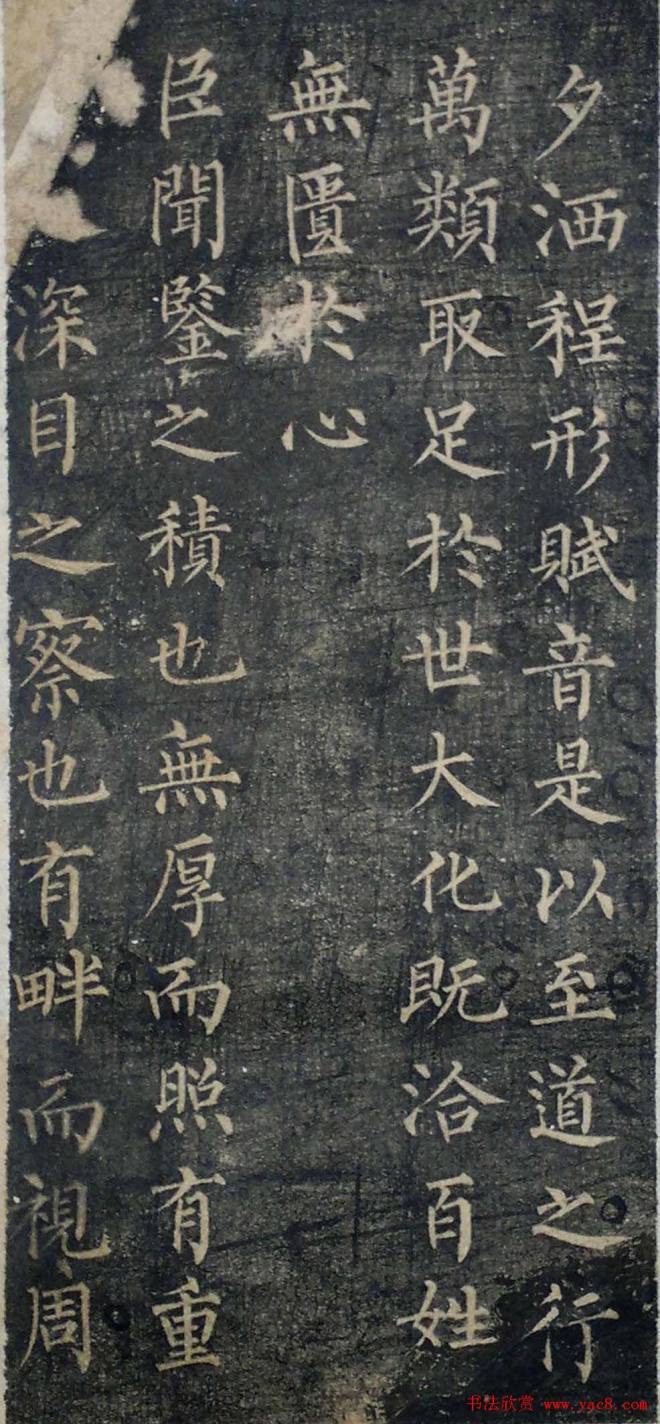 夕洒程形賦音是以至道之行
萬類取足於世大化既洽百姓
無匱於心
臣聞鑒之積也無厚而照有重
深目之察也有畔而視周
书法欣赏 www.yac8.com